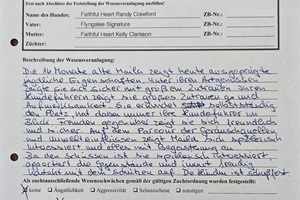 Text nach Abschluss der Feststellung der Wesensveranlagung:
Name des Hundes: Faithful Heart Randy Crawford ZB-Nr.:
Vater: Flyngalee Signature ZB-Nr.:
Mutter: Faithful Heart Kelly Clarkson ZB-Nr.:
Züchter:
Beschreibung der Wesensveranlagung:
Die 16 Monate alte Hündin zeigt heute ausgeprägte
jagdliche Eigenschaften. Unter ihren Artgenossen
zeigte sie sich sicher mit großem Zutrauen. Ihrem
Hundeführerin zeigt sie großes Zutrauen und
Aufmerksamkeit. Sie erkundet selbstständig
den Platz, hat dabei immer ihre Hundeführer im
Blick. Fremden gegenüber zeigt sie sich freundlich
und sicher. Auf dem Parcour der Geräuschquellen
und Umwelteinflüssen zeigt sich spielerisch
interessiert und offen mit Begeisterung an
Bei den Schüssen ist sie spielerisch interessiert,
apportiert die Gegenstände und immer freudig
Kontakt mit den Die Hündin ist schußfest
Als zuchtausschließende Wesensschwächen gemäß der gültigen Zuchtordnung werden festgestellt:
keine Ängstlichkeit Aggressivität Schussscheue sonstige: